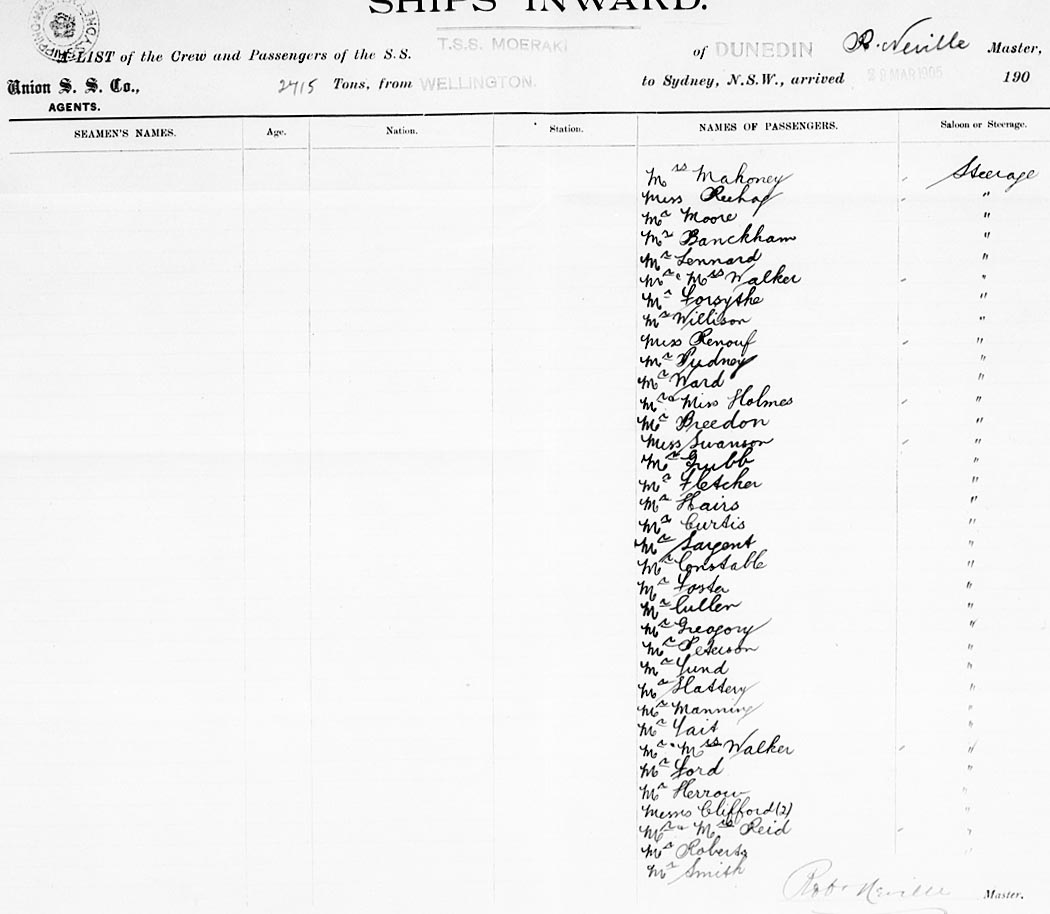 SHIPS INWARD.
A LIST of the Crew and Passengers of the S.S. T.S.S. MOERAKI of DUNEDIN R. Neville Master,
Union S. S. Co., 2715 Tons, from WELLINGTON. to Sydney, N.S.W., arrived 28 MAR 1905 190
AGENTS.
SEAMEN'S NAMES. Age. Nation. Station. NAMES OF PASSENGERS. Saloon or Steerage.
Mrs Mahoney Steerage
Miss "
Mr Moore "
Mr Banckham "
Mr Lennard "
Mr & Mrs Walker "
Mr Forsythe "
Mr Willison "
Miss Renouf "
Mr Pudney "
Mr Ward "
Mr & Miss Holmes "
Mr Breedon "
Miss Swanson "
Mr Grubb "
Mr Fletcher "
Mr Hairs "
Mr Curtis "
Mr Sargent "
Mr Constable "
Mr Foster "
Mr Cullen "
Mr Gregory "
Mr Peterson "
Mr Lund "
Mr Slattery "
Mr Manning "
Mr Tait "
Mr & Mrs Walker "
Mr Ford "
Mr Herrow "
Messrs Clifford (2) "
Mr & Mrs Reid "
Mr Roberts "
Mr Smith
Robt Neville Master.